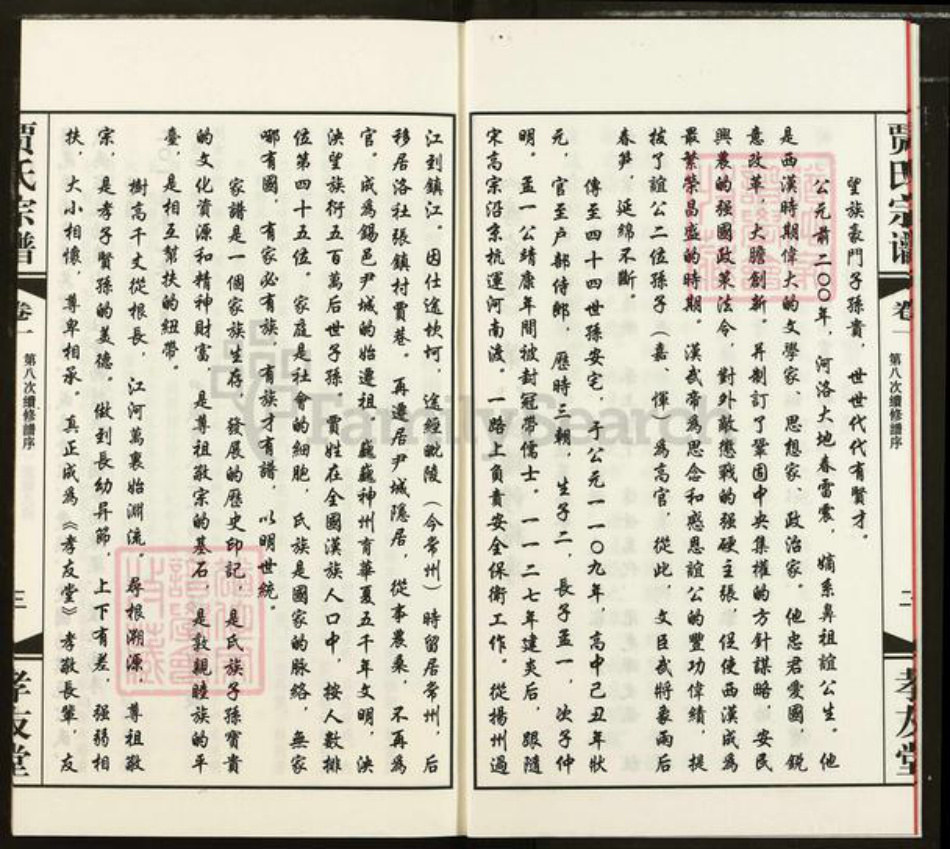 賈氏宗譜
卷一
第八次續修譜序
二
孝友堂
望族豪門子孫貴，世世代代有賢才。
公元前二〇〇年，河洛大地春雷震，嫡系鼻祖誼公生。他
是西漢時期偉大的文學家、思想家、政治家。他忠君愛國，銳
意改革，大膽創新，并制訂了鞏固中央集權的方針謀略，安民
興農的强國政策法令，對外敵懲戰的强硬主張，促使西漢成爲
最繁榮昌盛的時期。漢武帝爲思念和感恩誼公的豐功偉績，提
拔了誼公二位孫子（嘉、惲）爲高官，從此，文臣武將象雨后
春笋，延綿不斷。
傳至四十四世孫安宅，于公元一一〇九年，高中己丑年狀
元，官至户部侍郎，歷時三朝，生子二，長子孟一，次子仲
明。孟一公靖康年間被封冠帶儒士，一一二七年建炎后，跟隨
宋高宗沿京杭運河南渡。一路上負責安全保衛工作。從揚州過
江到鎮江。因仕途坎坷，途經毗陵（今常州）時留居常州，后
移居洛社張鎮村賈巷。再遷居尹城隱居，從事農桑，不再爲
官。成爲錫邑尹城的始遷祖。巍巍神州育華夏五千年文明，泱
泱望族衍五百萬后世子孫。賈姓在全國漢族人口中，按人數排
位第四十五位。家庭是社會的細胞，氏族是國家的脉絡，無家
哪有國，有家必有族，有族才有譜，以明世統。
家譜是一個家族生存、發展的歷史印記，是氏族子孫寶貴
的文化資源和精神財富，是尊祖敬宗的基石，是敦親睦族的平
臺，是相互幫扶的紐帶。
樹高千丈從根長，江河萬裏始淵流。尋根溯源，尊祖敬
宗，是孝子賢孫的美德。做到長幼昇節，上下有差，强弱相
扶，大小相懷，尊卑相承。真正成爲《孝友堂》孝敬長輩，友
賈氏宗譜
卷一
第八次續修譜序
三
孝友堂
FamilySearch